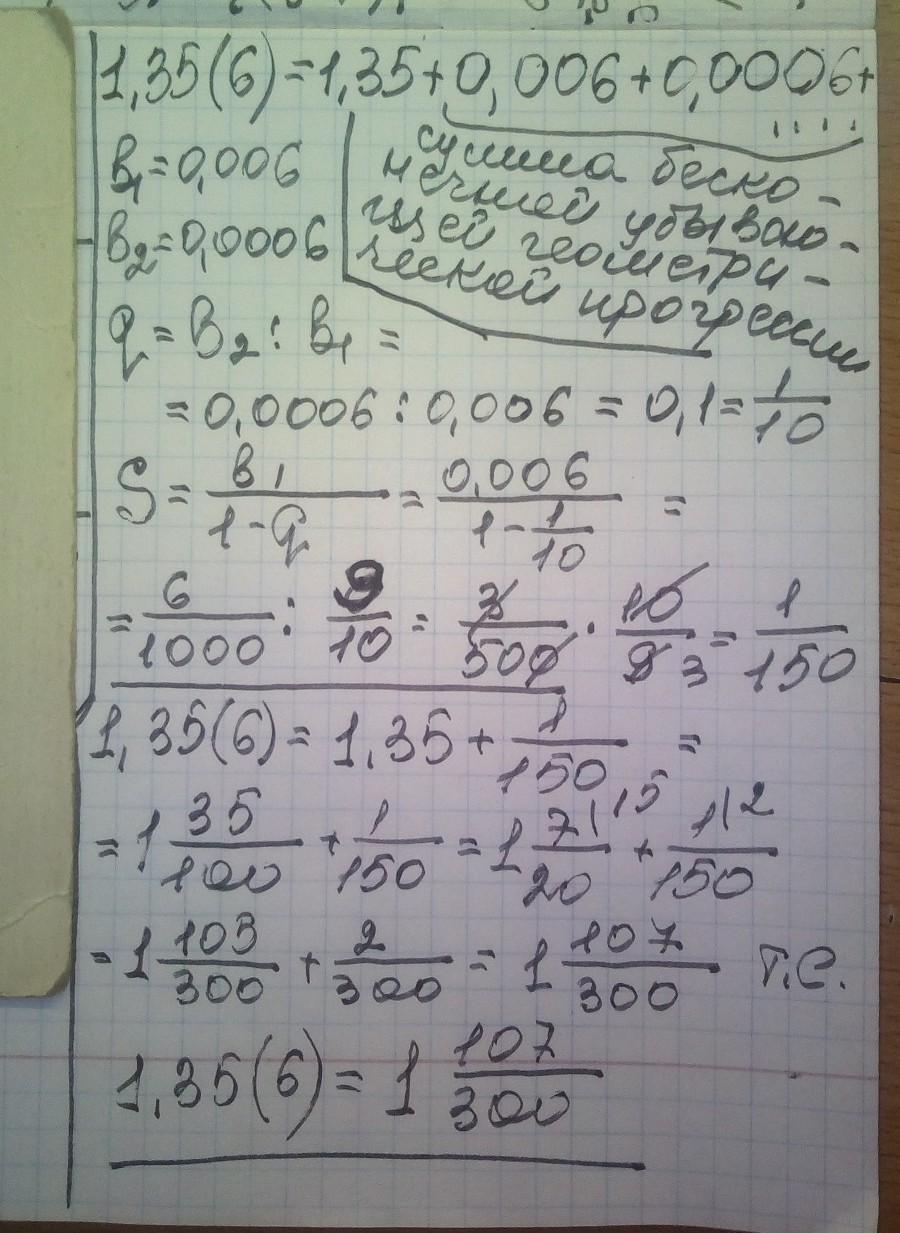 1,35(6)=1,35+0,006+0,0006+
....
B₁=0,006
B₂=0,0006
сумма беско-
нечной убываю-
щей геометри-
ческой прогрессии
q = B₂ : B₁ =
= 0,0006 : 0,006 = 0,1 = 1/10
S = B₁/(1-q) = 0,006/(1-1/10) =
= 6/1000 : 9/10 = 3/500 · 10/9 3 = 1/150
1,35(6) = 1,35 + 1/150 =
= 1 35/100 + 1/150 = 1 7|15/20 + 1|2/150
= 1 103/300 + 2/300 = 1 107/300 т.с.
1,35(6) = 1 107/300